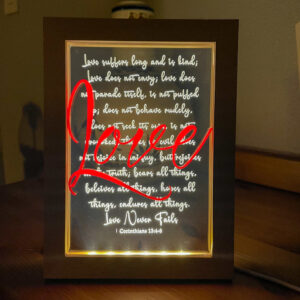 Love suffers long and is kind;
Love does not envy; love does
not parade itself, is not puffed
up; does not behave rudely,
does not seek its own, is not
provoked, thinks no evil; does
not rejoice in iniquity, but rejoices
in the truth; bears all things,
beleives all things, hopes all
things, endures all things.
Love Never Fails
1 Corinthians 13:4-8
Love